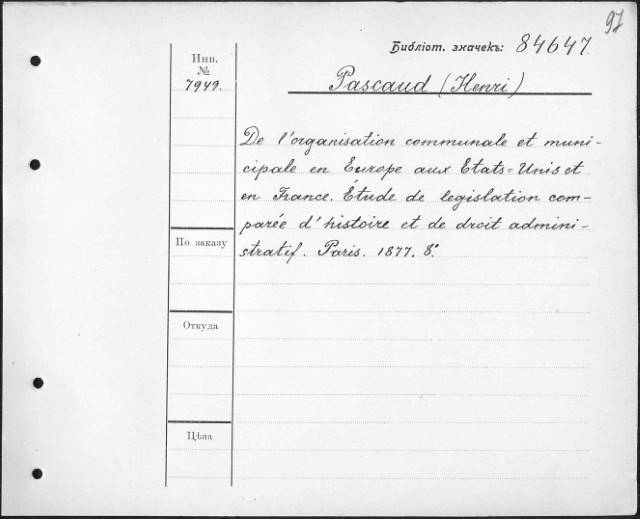 97
Библіот. значекъ: 84647.
Инв.
№
7949.
Pascaud (Henri)
De l'organisation communale et muni-
cipale en Europe aux Etats=Unis et
en France. Étude de legislation com-
parée d'histoire et de droit admini-
stratif. Paris. 1877. 8º.
По заказу
Откуда
Цѣна